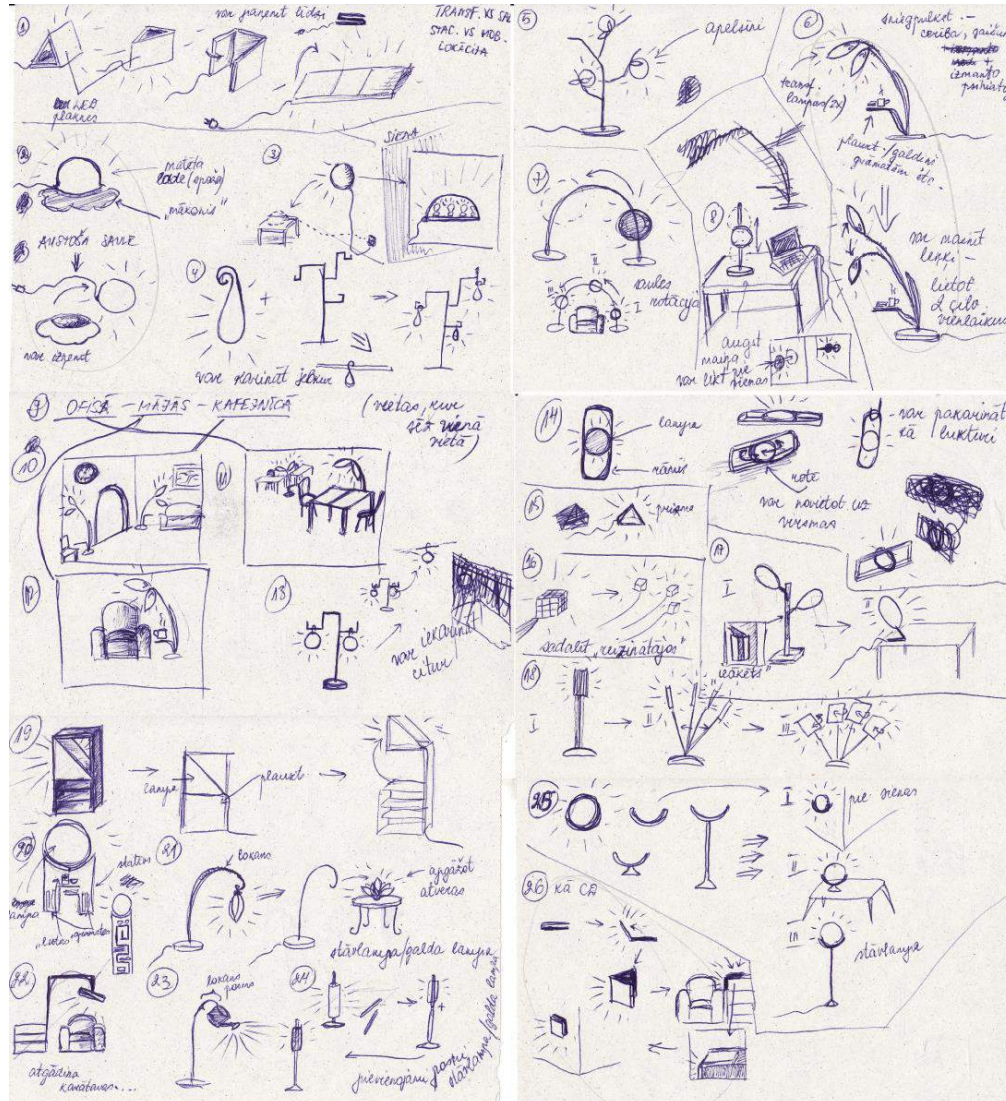 ①
var paņemt līdzi
TRANSF. VS
STAC. VS MOB.
LOKĀCIJA
plaknes
②
matēta
lode
"mākonis"
AUSTOŠA SAULE
var izņemt
③
SIENA
④
+
var karināt jebkur
⑤
apelsīni
⑥
sniegpulkst. -
cerība, gaišu
+
izmanto
transf.
lampas (2x)
plaukt./galdiņi
grāmatām etc.
var mainīt
leņķi -
lietot
2 cilv.
vienlaikus
⑦
II
I
saules
rotācija
⑧
augst.
maiņa
var likt pie
sienas
⑨ OFISĀ - MĀJĀS - KAFEJNĪCĀ
(vietas, kur
sēž vienā
vietā)
⑩
⑪
⑫
⑬
var iekarināt
citur
⑭
lampa
rāmis
rotē
var novietot uz
virsmas
var pakarināt
kā lukturi
⑮
prisma
⑯
sadalīt
⑰
I
II
⑱
I
II
III
⑲
lampa
plaukt
⑳
statīvs
lampa
㉑
lokans
apgāžot
atveras
stāvlampa/galda lampa
㉒
atgādina
㉓
lokans
㉔
+
pievienojami
stāvlampa/galda lampa
㉕
I
pie sienas
II
III
stāvlampa
㉖ kā CD